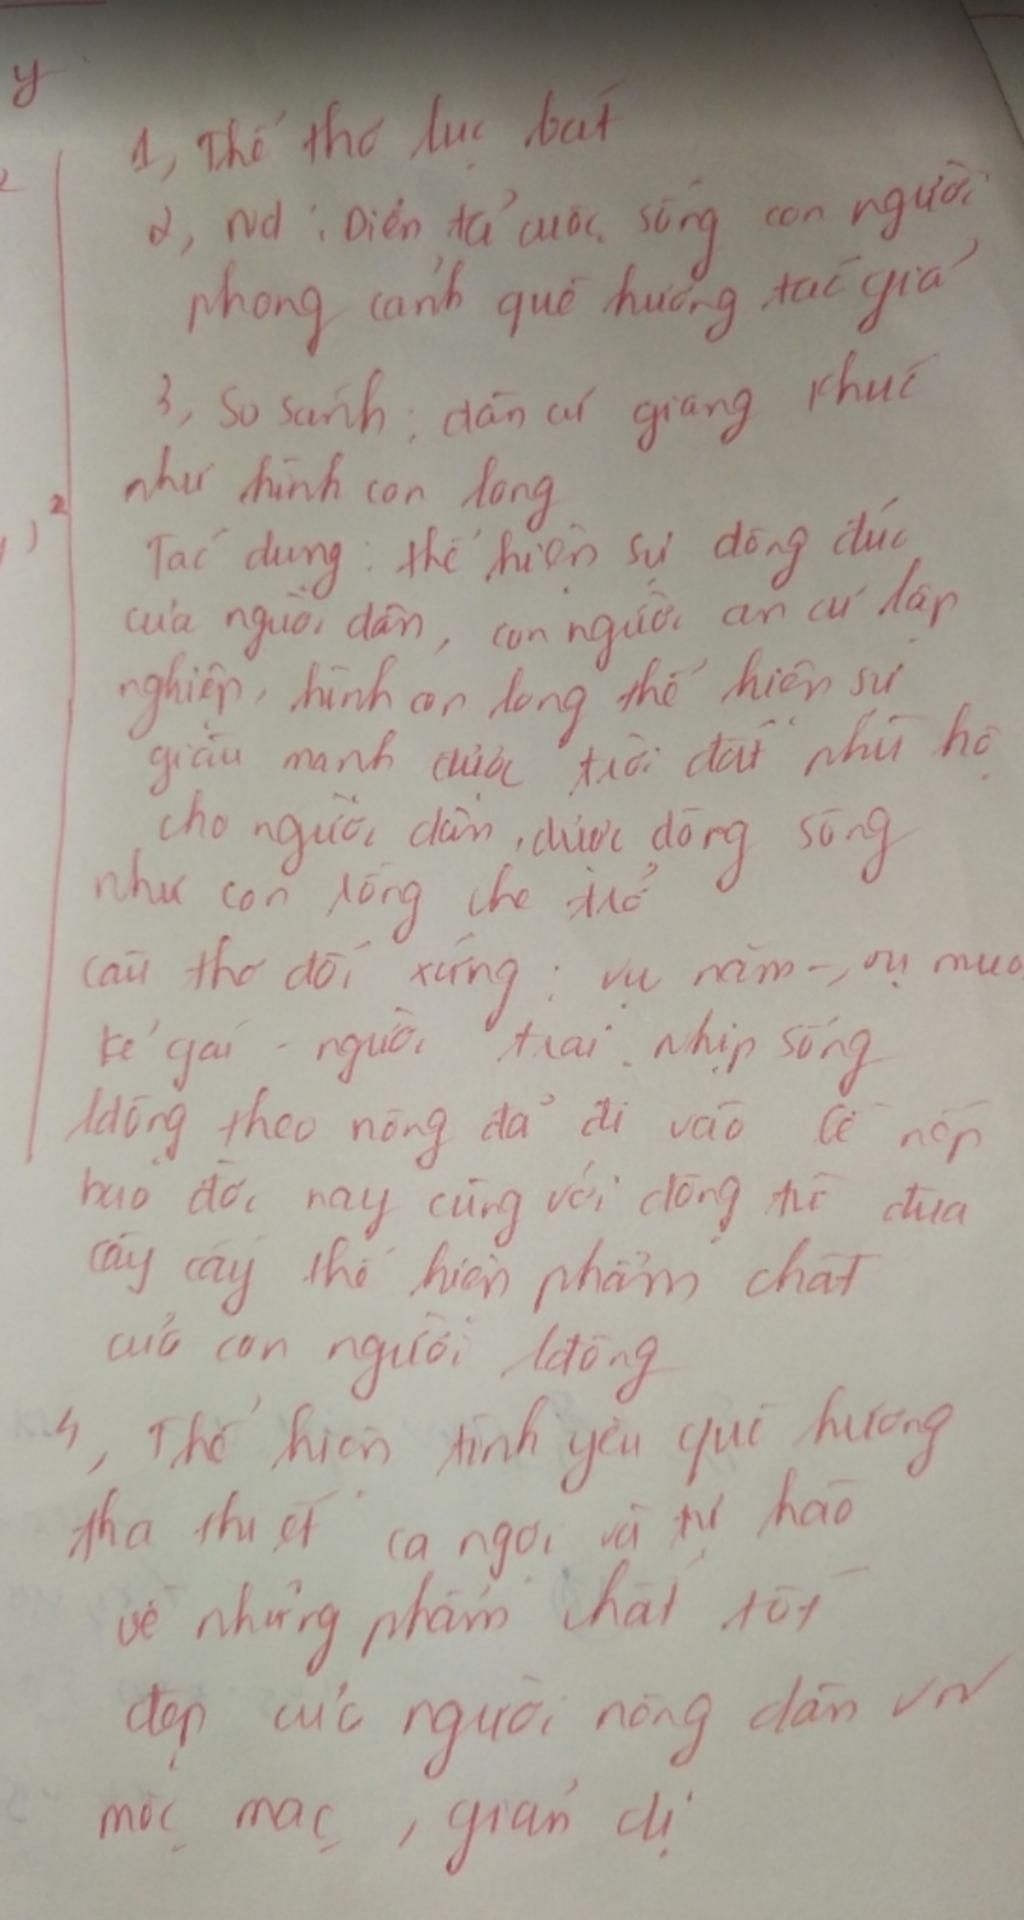 y
1, Thể thơ lục bát
2, Nd : Diễn tả cuộc sống con người
phong cảnh quê hương tác giả
3, So sánh : dân cư giang khúc
như hình con long
Tác dụng : thể hiện sự đông đúc
của người dân, con người an cư lập
nghiệp, hình con long thể hiện sự
giàu mạnh được trời đất phù hộ
cho người dân, được dòng sông
như con rồng che trở
câu thơ đối xứng : vụ năm -, vụ mùa
kẻ gái - người trai. Nhịp sống
lđộng theo nông đã đi vào lề nếp
bao đời nay cùng với động từ đua
cày cấy thể hiện phẩm chất
của con người lđông
4, Thể hiện tình yêu quê hương
tha thiết ca ngợi và tự hào
về những phẩm chất tốt
đẹp của người nông dân VN
mộc mạc, giản dị